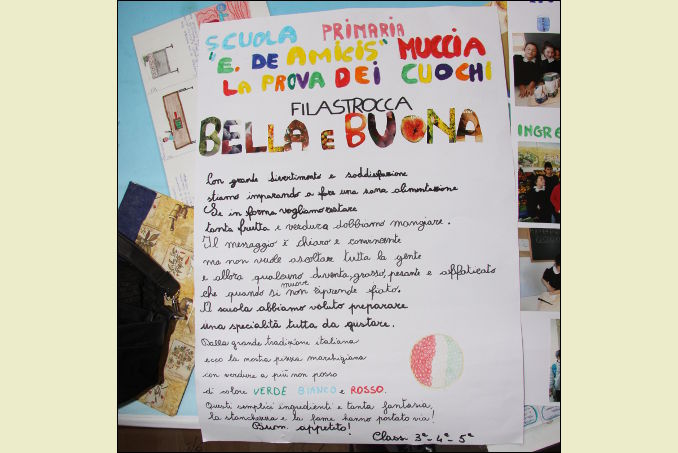 SCUOLA PRIMARIA
"E. DE AMICIS" MUCCIA
LA PROVA DEI CUOCHI
FILASTROCCA
BELLA E BUONA
Con grande divertimento e soddisfazione
stiamo imparando a fare una sana alimentazione
Se in forma vogliamo restare
tanta frutta e verdura dobbiamo mangiare.
Il messaggio è chiaro e convincente
ma non vuole ascoltare tutta la gente
e allora qualcuno diventa, grasso, pesante e affaticato
che quando si muove non riprende fiato.
A scuola abbiamo voluto preparare
una specialità tutta da gustare.
Dalla grande tradizione italiana
ecco la nostra pizza marchigiana
con verdure a più non posso
di colore VERDE BIANCO e ROSSO.
Questi semplici ingredienti e tanta fantasia,
la stanchezza e la fame hanno portato via!
Buon appetito!
Classi 3ª-4ª-5ª
INGRE